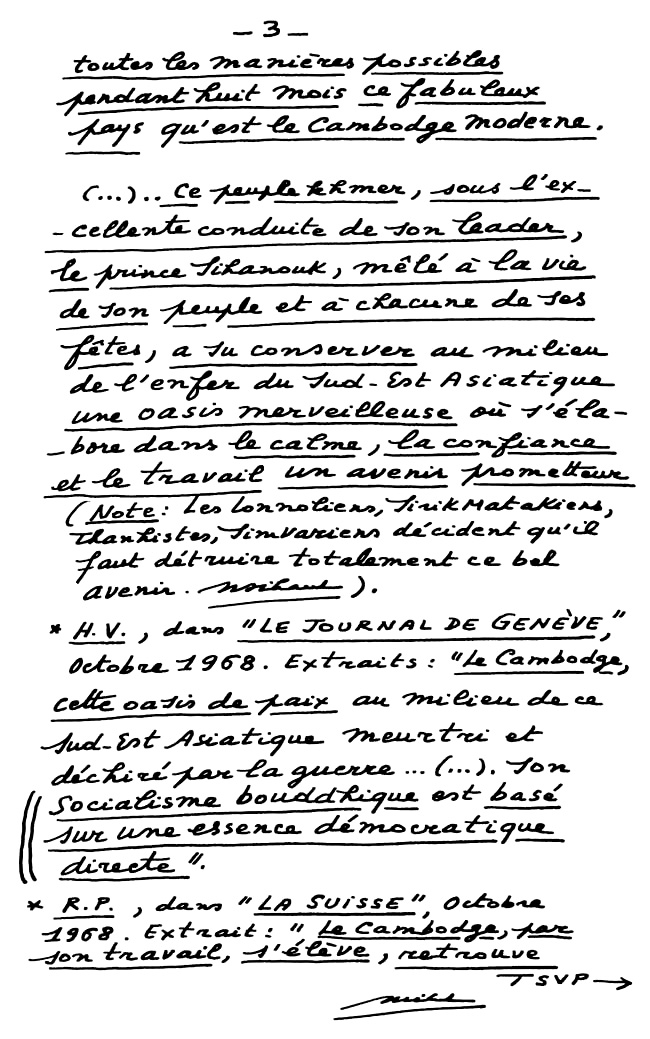 - 3 -
toutes les manières possibles
pendant huit mois ce fabuleux
pays qu'est le Cambodge Moderne.
(...).. Ce peuple khmer, sous l'ex-
- cellente conduite de son leader,
le prince Sihanouk, mêlé à la vie
de son peuple et à chacune de ses
fêtes, a su conserver au milieu
de l'enfer du Sud-Est Asiatique
une oasis merveilleuse où s'éla-
- bore dans le calme, la confiance
et le travail un avenir prometteur
(Note: Les Lonnoliens, Sirik Matakiens,
Thanhistes, Simvariens décident qu'il
faut détruire totalement ce bel
avenir. ).
* H.V., dans "LE JOURNAL DE GENÈVE,"
Octobre 1968. Extraits : "Le Cambodge,
cette oasis de paix au milieu de ce
Sud-Est Asiatique meurtri et
déchiré par la guerre ... (...). Son
Socialisme bouddhique est basé
sur une essence démocratique
directe".
* R.P., dans "LA SUISSE", Octobre
1968. Extrait : "Le Cambodge, par
son travail, s'élève, retrouve
TSVP →